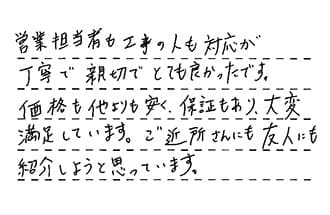 営業担当者も工事の人も対応が
丁寧で親切でとても良かったです。
価格も他よりも安く、保証もあり、大変
満足しています。ご近所さんにも友人にも
紹介しようと思っています。